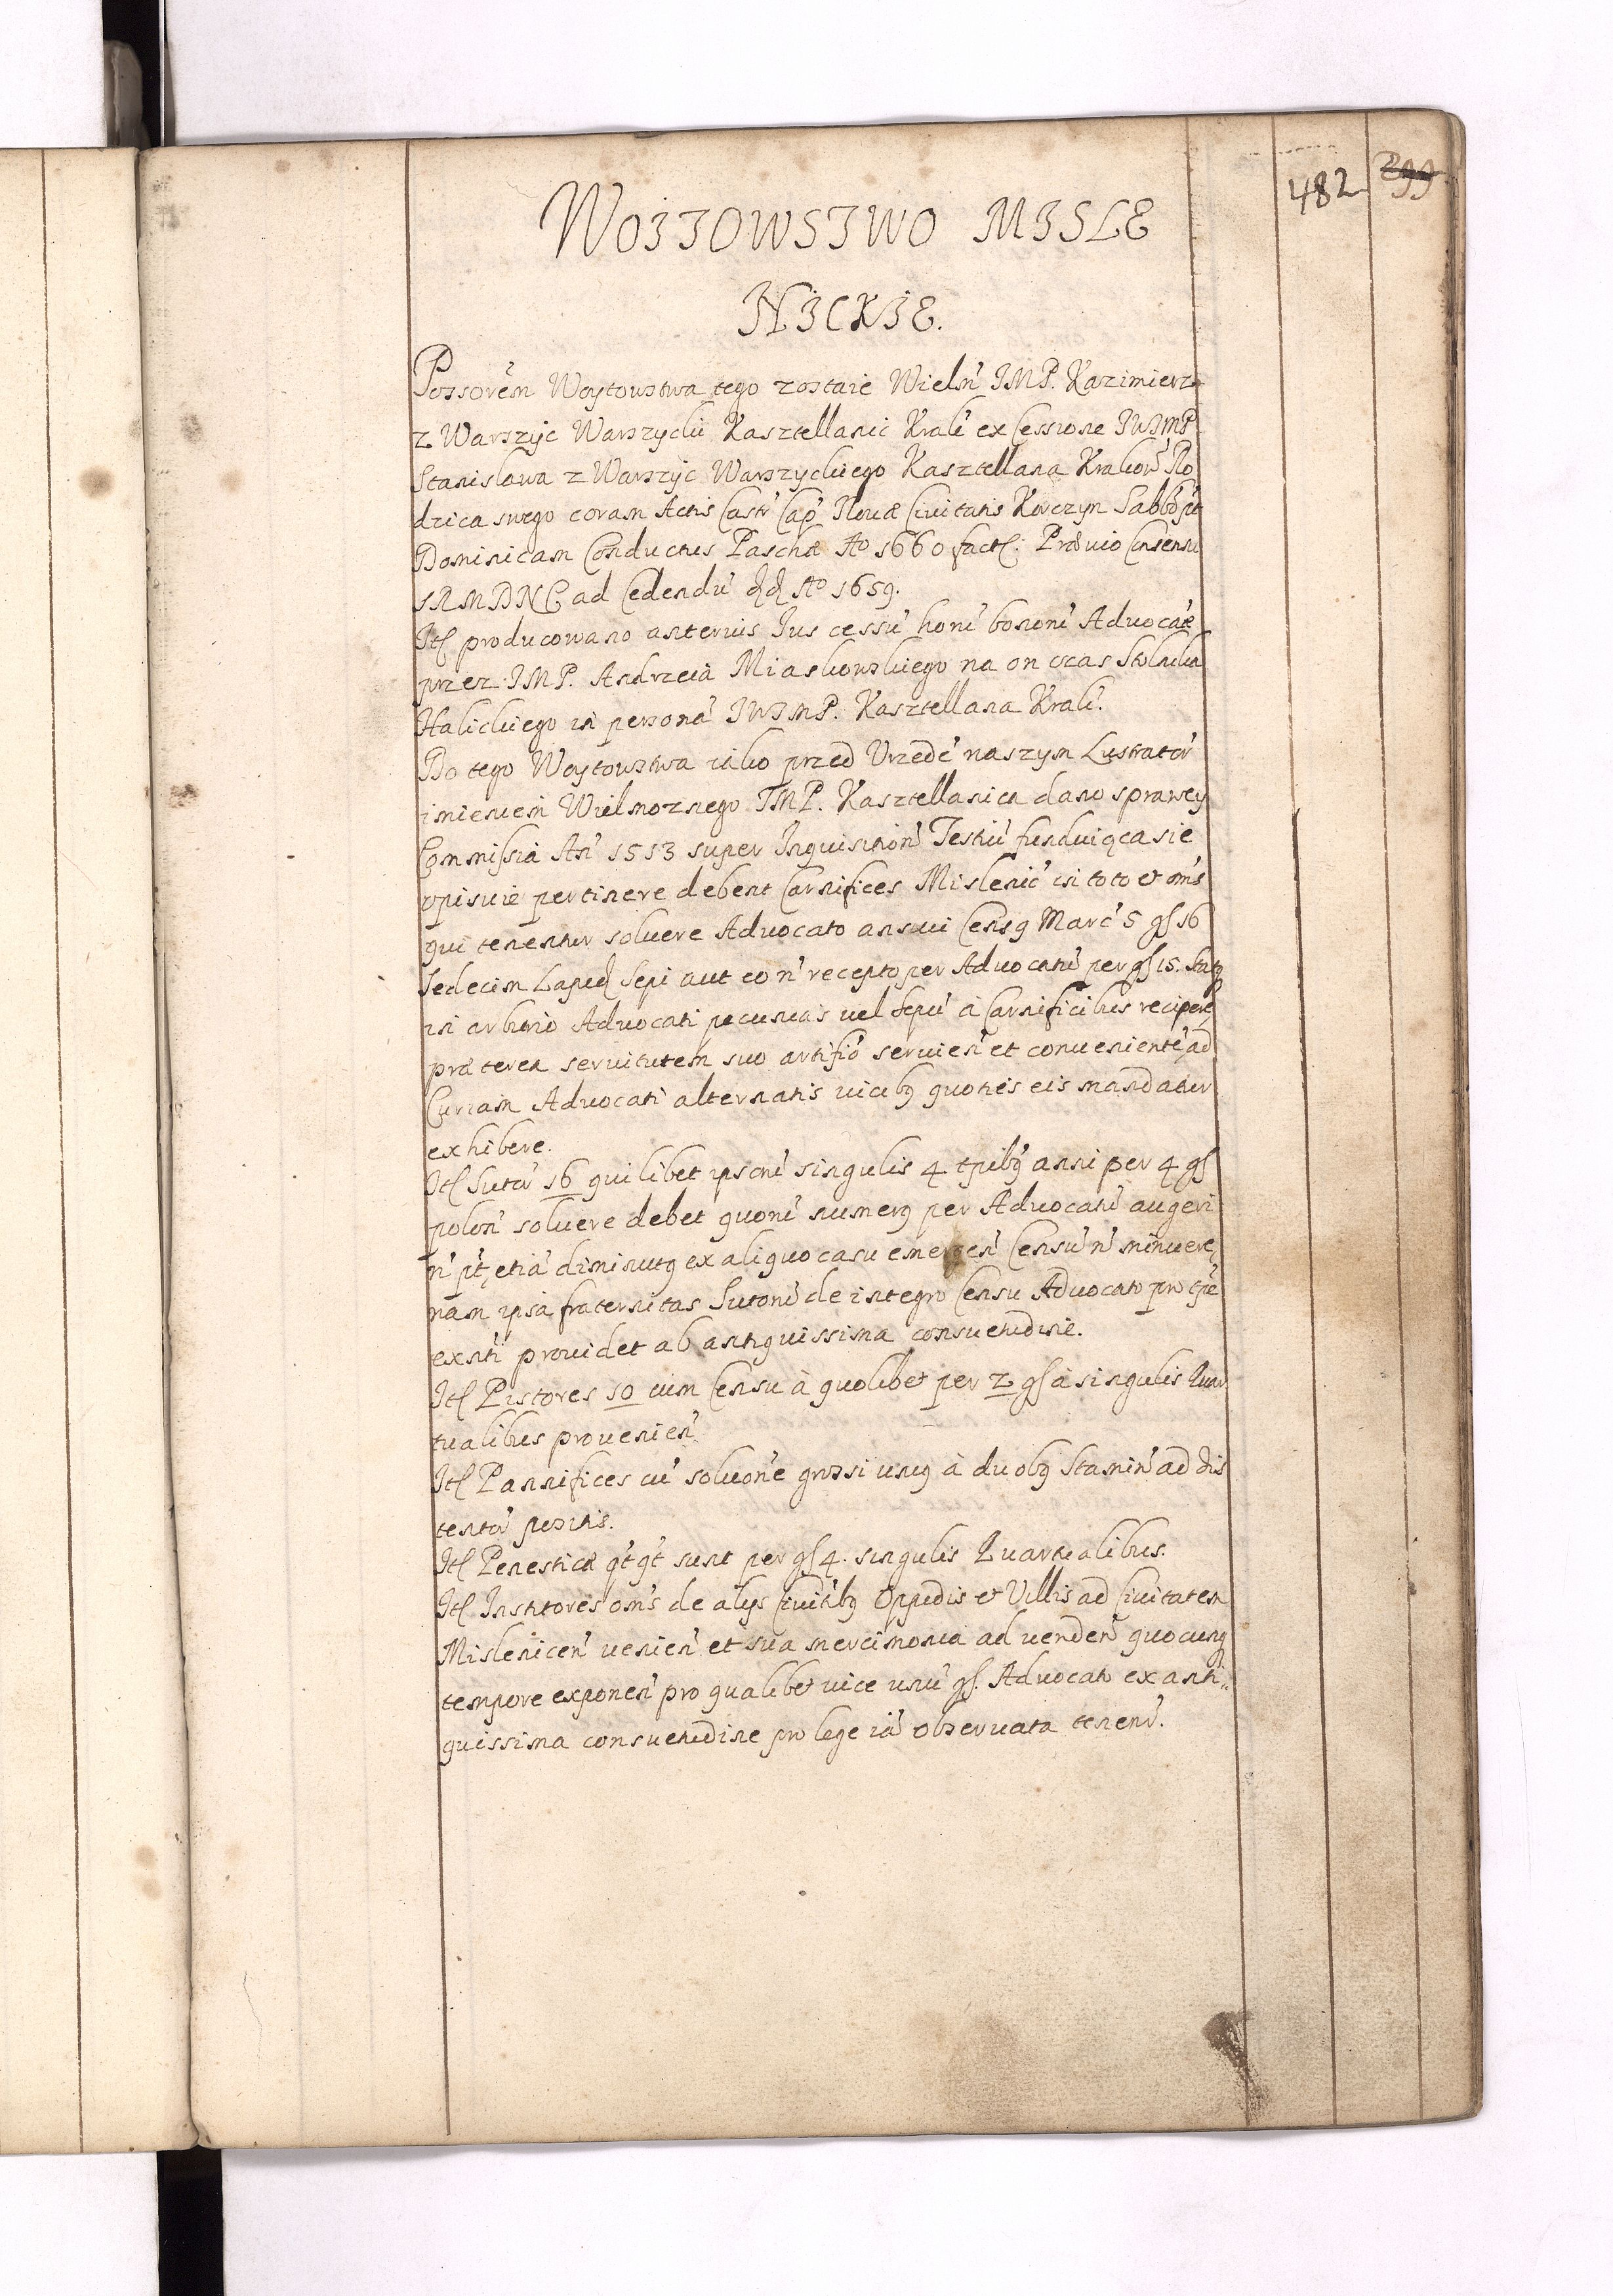 482 299
WOITOWSTWO MISLE
NICKIE.
Possorem̃ Woytowstwa tego zostaie Wielm̃ IMP. Kazimierz
z Warszyc Warszycki Kasztellanic Krak̃ ex Cessione IWIMP
Stanisława z Warszyc Warszyckiego Kasztellana Krakow̃ Ro
dzica swego coram Actis Castr̃ Cap̃ Novæ Civitatis Korczyn Sabbo pt̃
Dominicam Conductus Paschæ Ao 1660 fact. Prævio Consensu
SRMDNC ad Cedendũ dd Ao 1659.
Itt producowano anterius Ius cessũ horũ bonorũ Advocat̃æ
przez IMP. Andrzeia Miaskowskiego na on czas Stolnika
Halickiego in personã IWIMP. Kasztellana Krak̃.
Do tego Woytowstwa iako przed Urzedẽ naszym Lustrator̃
imieniem̃ Wielmoznego IMP. Kasztellanica dano sprawey
Commissia An̄ 1513 super Inquisition̄ Testiũ funduiąca sie
opisuie pertinere debent Carnifices Mislenic̃ in toto et om̃s
qui tenentur solvere Advocato annui Censq Marc̃ 5 gſ 16
Sedecim Lapid Sepi aut eo ñ recepto per Advocatũ per gſ 15. Statq
in arbitrio Advocati pecunias vel sepũ à Carnificibus recipere
præterea servitutem suo artifiõ servieñ et convenientẽ ad
Curiam Advocati alternatis vicibq quoties eis mandatur
exhibere.
Itt Sutor̃ 16 quilibet ipsorũ singulis 4 tp̃ibq anni per 4 gſ
polon̄ solvere debet quorũ numerq per Advocatũ augeri
ñ pt̃, etiã diminutq ex aliquo casu emergeñ Censũ ñ minuere,
nam ipsa fraternitas Sutorũ de integro Censu Advocato pro tp̃e
exn̄ti providet ab antiquissima consuetudine.
Itt Pistores 10 cum Censu à quolibet per 2 gſ à singulis Quar
tualibus provenieñ.
Itt Pannifices cũ solutõne grossi unq à duobq Stamin̄ ad dis
tentor̃ positis.
Itt Penesticæ qt̃qt̃ sunt per gſ 4. singulis Quartualibus.
Itt Institores om̃s de alys Civit̃ibq Oppidis et Villis ad Civitatem
Mislenicen̄ venieñ et sua mercimonia ad venden̄ quocunq
tempore exponeñ pro qualibet vice unũ gſ. Advocato ex anti„
quissima consuetudine pro lege iã observata tenenr̃.